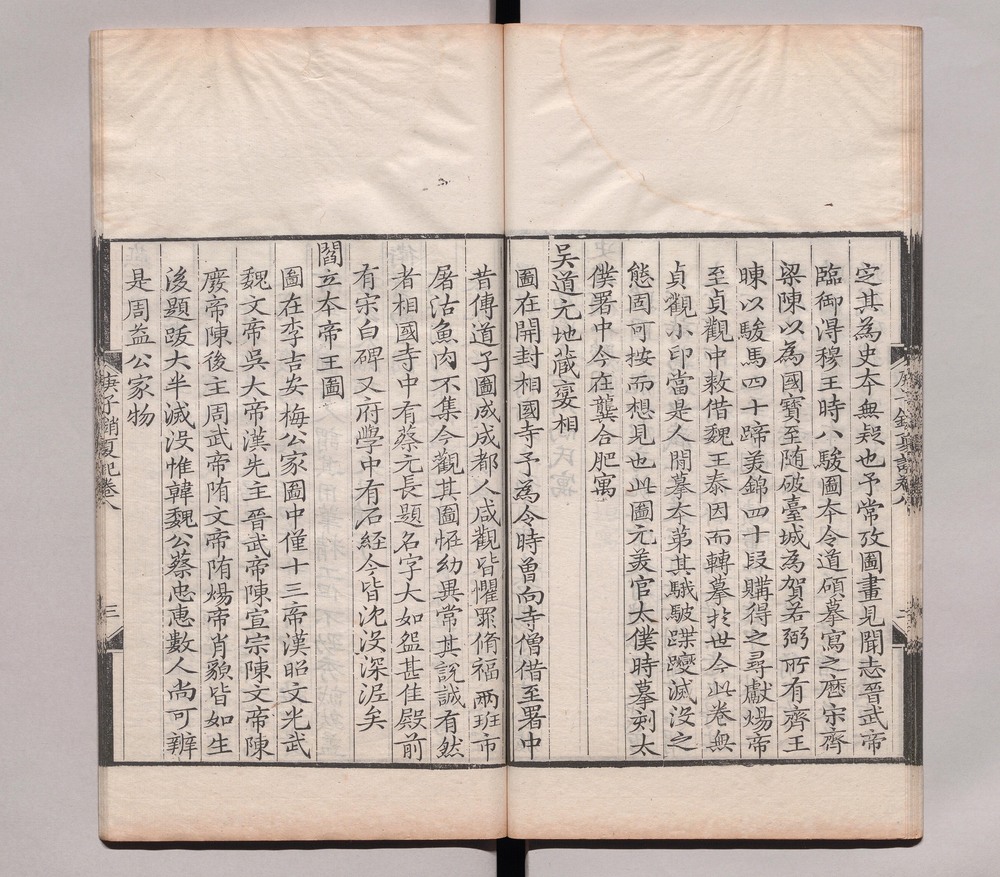 定其為史本無疑也予常攷圖畫見聞志晉武帝
臨御淂穆王時八駿圖本令道碩摹寫之歷宋齊
梁陳以為國寶至随破臺城為賀若弼所有齊王
暕以駿馬四十蹄羙錦四十段購得之尋獻煬帝
至貞觀中敕借魏王泰因而轉摹扵世今此卷無
貞觀小印當是人間摹本弟其駥駊蹀躞滅沒之
態固可按而想見也此圖元美官太僕時摹刻太
僕署中今在龔合肥寓
吴道元地蔵变相
圖在開封相國寺予為令時曾向寺僧借至署中
昔傳道子圖成成都人咸觀皆懼罪脩福兩班市
屠沽魚肉不集今觀其圖恠幼異常其說誠有然
者相國寺中有蔡元長題名字大如盌甚佳殿前
有宋白碑又府學中有石経今皆沈没深泥矣
閻立本帝王圖
圖在李吉安梅公家圖中僅十三帝漢昭文光武
魏文帝吳大帝漢先主晉武帝陳宣宗陳文帝陳
廢帝陳後主周武帝隋文帝隋煬帝肖貌皆如生
後題跋大半滅没惟韓魏公蔡忠惠數人尚可辨
是周益公家物
庚子銷夏記卷八
三